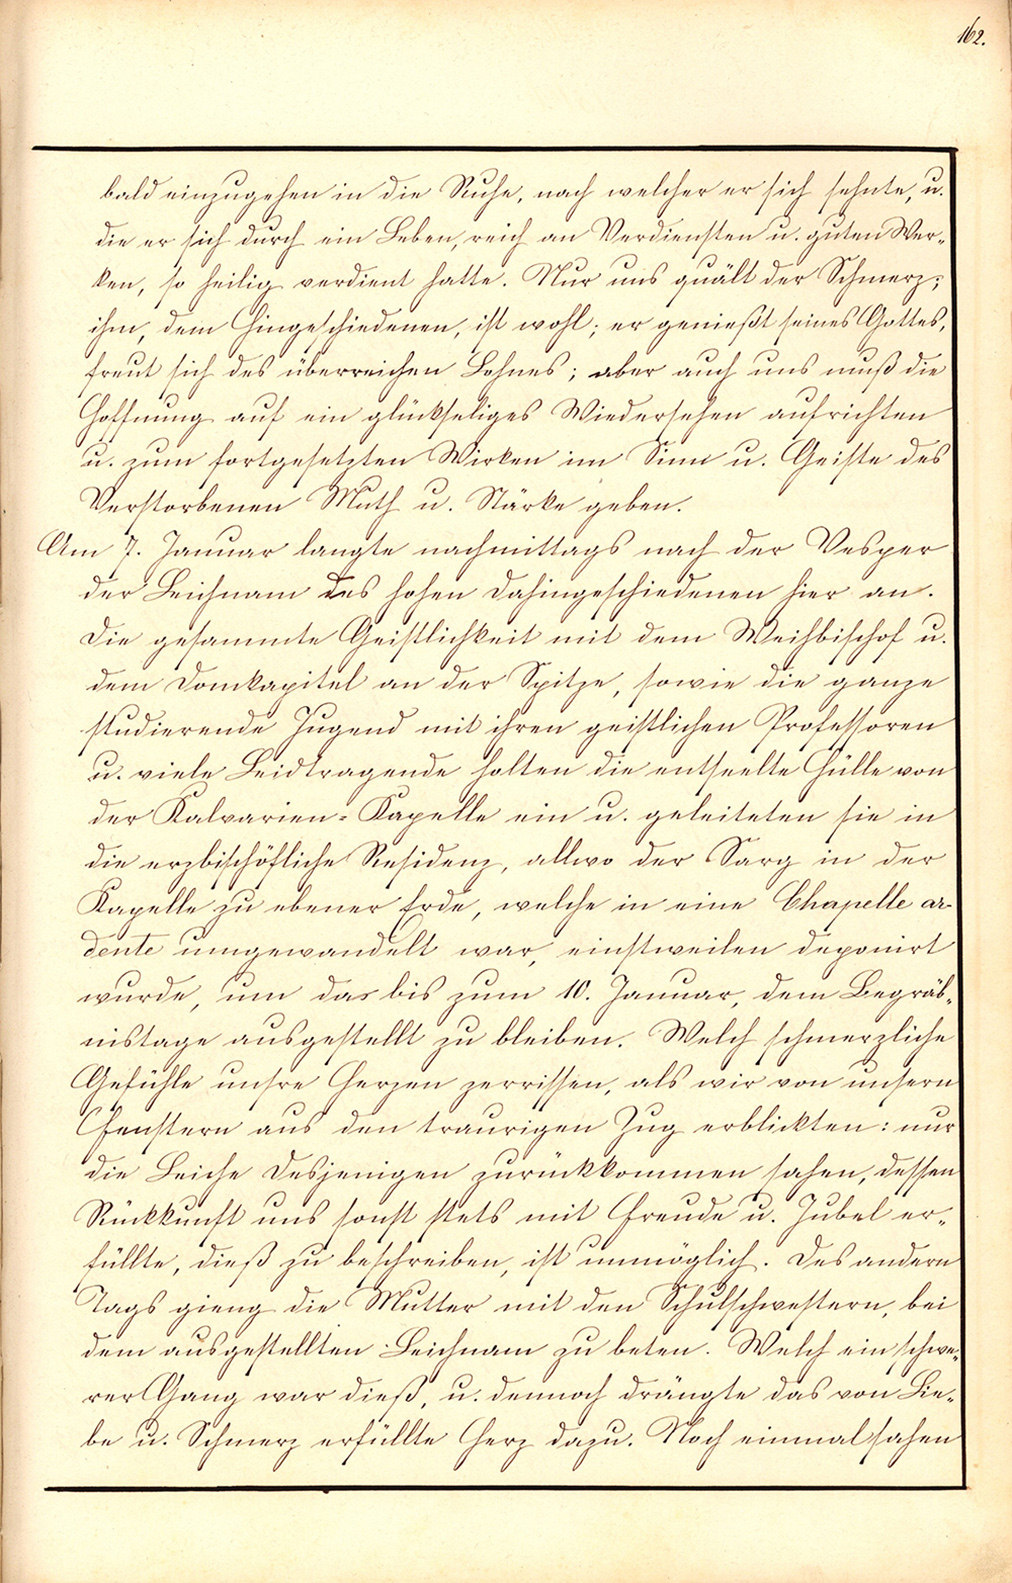 162.
bald einzugehen in die Ruhe, nach welcher er sich sehnte, u.
die er sich durch ein Leben, reich an Verdiensten u. guten Wer-
ken, so heilig verdient hatte. Nur uns quält der Schmerz;
ihm, dem Hingeschiedenen, ist wohl; er genießt seines Gottes,
freut sich des überreichen Lohnes; aber auch uns muß die
Hoffnung auf ein glückseliges Wiedersehen aufrichten
u. zum fortgesetzten Wirken im Sinn u. Geiste des
Verstorbenen Muth u. Stärke geben.
Am 7. Januar langte nachmittags nach der Vesper
der Leichnam des hohen Dahingeschiedenen hier an.
Die gesammte Geistlichkeit mit dem Weihbischof u.
dem Domkapitel an der Spitze, sowie die ganze
studierende Jugend mit ihren geistlichen Professoren
u. viele Leidtragende holten die entseelte Hülle von
der Kalvarien-Kapelle ein u. geleiteten sie in
die erzbischöfliche Residenz, allwo der Sarg in der
Kapelle zu ebener Erde, welche in eine Chapelle ar-
dente umgewandelt war, einstweilen deponirt
wurde, um das bis zum 10. Januar, dem Begräb-
nistage ausgestellt zu bleiben. Welch schmerzliche
Gefühle unsre Herzen zerrissen, als wir von unsern
Fenstern aus den traurigen Zug erblickten: nur
die Leiche Desjenigen zurückkommen sahen, dessen
Rückkunft uns sonst stets mit Freude u. Jubel er-
füllte, dieß zu beschreiben, ist unmöglich. Des andern
Tags gieng die Mutter mit den Schulschwestern, bei
dem ausgestellten Leichnam zu beten. Welch ein schwe-
rer Gang war dieß, u. dennoch drängte das von Lie-
be u. Schmerz erfüllte Herz dazu. Noch einmal sahen